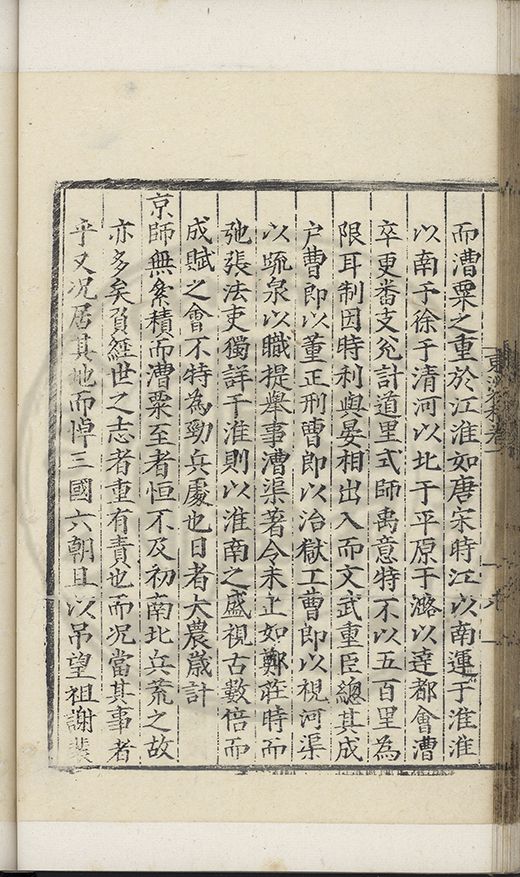 而漕粟之重於江淮如唐宋時江以南運于淮淮
以南于徐于清河以北于平原于潞以達都會漕
卒更畨支兊計道里式師禹意特不以五百里為
限耳制因時利與晏相出入而文武重臣總其成
户曹即以董正刑曹即以治獄工曹即以視河渠
以䟽泉以職提舉事漕渠著令未止如鄭莊時而
弛張法吏獨詳于淮則以淮南之盛視古數倍而
成賦之會不特為勁兵處也日者大農嵗計
京師無參積而漕粟至者恒不及初南北兵荒之故
亦多矣負經世之志者重有責也而况當其事者
乎又况居其地而悼三國六朝且以吊望祖謝裴